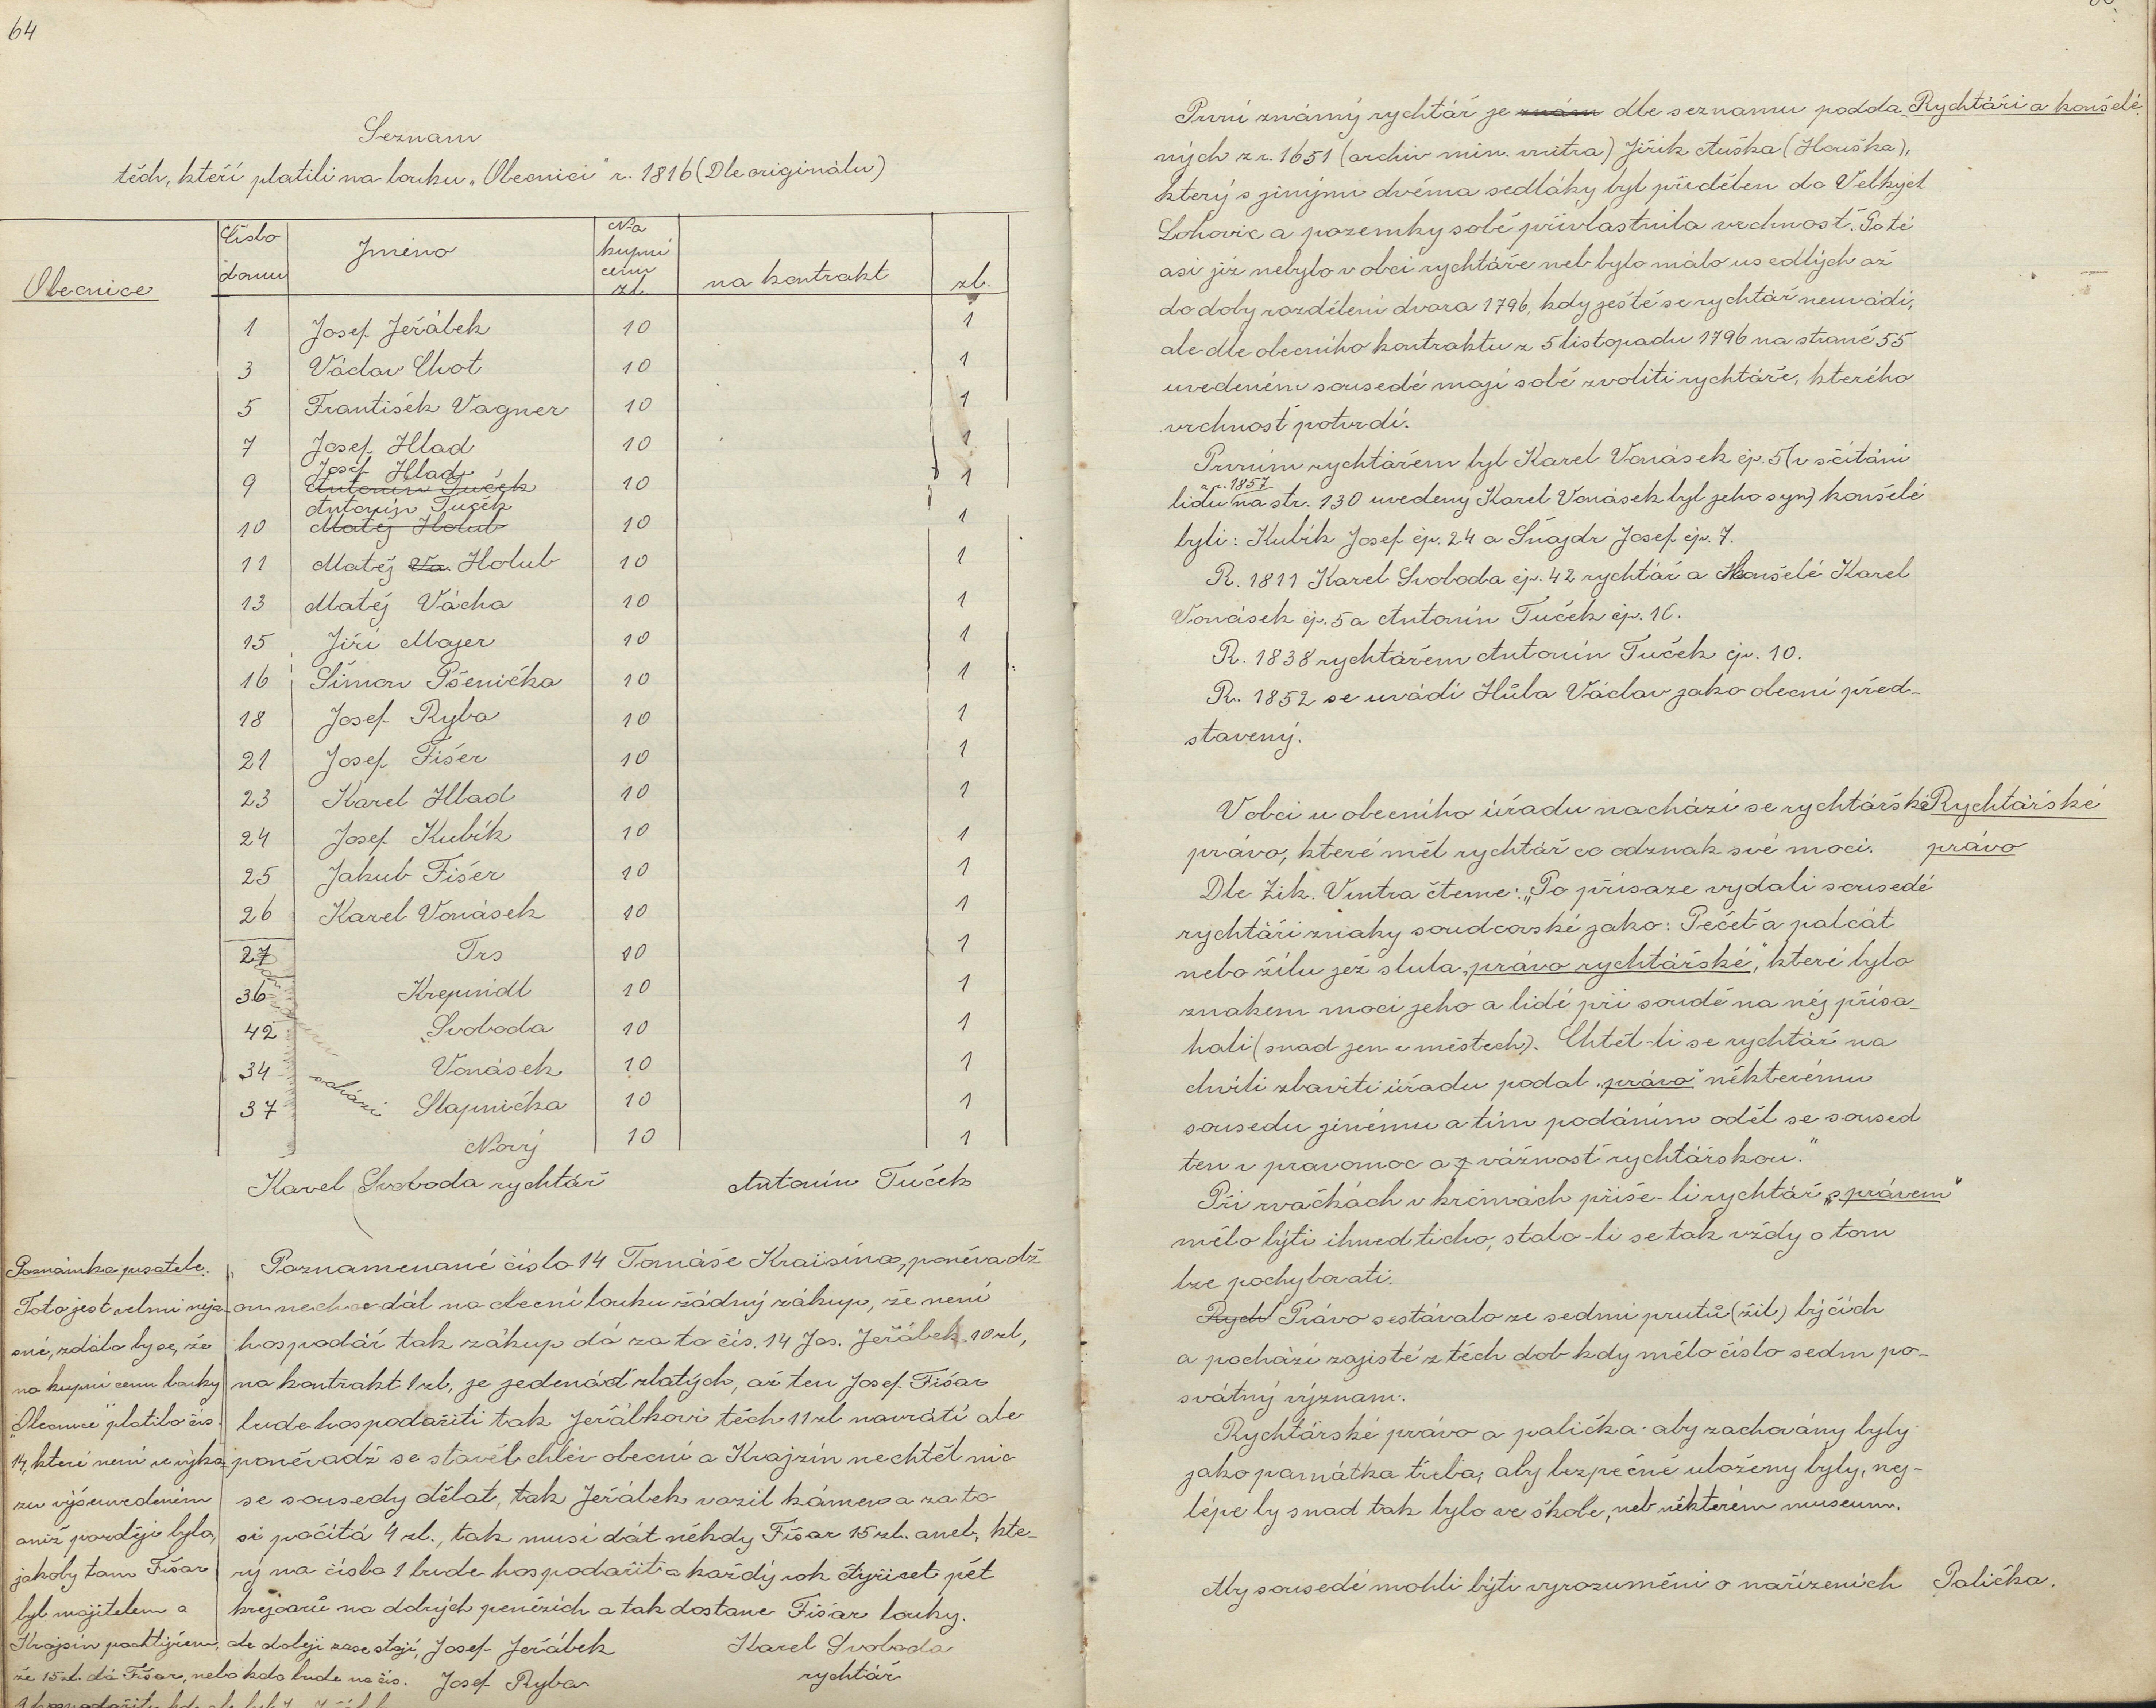 64
Seznam
těch, kteří platili na louku „Obecnici" r. 1816 (Dle originálu)
Obecnice
Číslo domu | Jméno | Na kupní cenu zl. | na kontrakt | zl.
1 Josef Jeřábek 10 1
3 Václav Chot 10 1
5 František Vagner 10 1
7 Josef Hlad 10 1
Josef Hlad
9 Antonín Tuček 10 1
Antonín Tuček
10 Matěj Holub 10 1
11 Matěj Va Holub 10 1
13 Matěj Vácha 10 1
15 Jiří Majer 10 1
16 Šimon Pšenička 10 1
18 Josef Ryba 10 1
21 Josef Fišer 10 1
23 Karel Hlad 10 1
24 Josef Kubík 10 1
25 Jakub Fišer 10 1
26 Karel Vonásek 10 1
27 Trs 10 1
36 Krepindl 10 1
42 Svoboda 10 1
34 Vonásek 10 1
37 schází Slapnička 10 1
Nový 10 1
Karel Svoboda rychtář Antonín Tuček
Poznámka pisatele:
Toto jest velmineja-
sné, zdálo by se, že
na kupní cenu louky
„Obecnice" platilo čís.
14, které není ve výka-
zu výšeuvedeném
aniž později bylo,
jakoby tam Fišar
byl majitelem a
Krajsín pachtýřem, ale doleji zase stojí,
že 15 zl. dá Fišar, nebo kdo bude na čís.
Poznamenané číslo 14 Tomáše Kraisína, poněvadž
on nechce dát na obecní louku žádný zákup, že není
hospodář tak zákup dá za to čís. 14 Jos. Jeřábek 10 zl,
na kontrakt 1 zl, je jedenáct zlatých, až ten Josef Fišar
bude hospodařiti tak Jeřábkovi těch 11 zl navrátí ale
poněvadž se stavěl chlév obecní a Krajzín nechtěl nic
se sousedy dělat, tak Jeřábek vozil kámen a za to
si počítá 4 zl., tak musí dát někdy Fišar 15 zl. aneb, kte-
rý na čísla 1 bude hospodařiti a každý rok čtyřicet pět
krejcarů na dobrých penězích a tak dostane Fišar louky.
Josef Jeřábek Karel Svoboda
Josef Ryba rychtář
První známý rychtář je znám dle seznamu podda-
Rychtáři a konšelé
ných z r. 1651 (archiv min. vnitra) Jiřík Auška (Houška),
který s jinými dvěma sedláky byl přidělen do Velkých
Lohovic a pozemky sobě přivlastnila vrchnosť. Poté
asi již nebylo v obci rychtáře neb bylo málo usedlých až
do doby rozdělení dvora 1796, kdy ještě se rychtář neuvádí,
ale dle obecního kontraktu z 5 listopadu 1796 na straně 55
uvedeném sousedé mají sobě zvoliti rychtáře, kterého
vrchnosť potvrdí.
Prvním rychtářem byl Karel Vonásek čp. 5 (v sčítání
lidu z r. 1857 na str. 130 uvedený Karel Vonásek byl jeho syn) konšelé
byli: Kubík Josef čp. 24 a Šnajdr Josef čp. 7.
R. 1811 Karel Svoboda čp. 42 rychtář a konšelé Karel
Vonásek čp. 5 a Antonín Tuček čp. 10.
R. 1838 rychtářem Antonín Tuček čp. 10.
R. 1852 se uvádí Hůla Václav jako obecní před-
stavený.
V obci u obecního úřadu nachází se rychtářské
Rychtářské
právo, které měl rychtář co odznak své moci.
právo
Dle Zik. Vintra čteme: „Po přísaze vydali sousedé
rychtáři znaky soudcovské jako: Pečeť a palcát
nebo žílu jež slula „právo rychtářské", které bylo
znakem moci jeho a lidé při soudě na něj přísa-
hali (snad jen v městech). Chtěl-li se rychtář na
chvíli zbaviti úřadu podal „právo" některému
sousedu jinému a tím podáním oděl se soused
ten v pravomoc a z vážnosť rychtářskou."
Při rvačkách v krčmách přiše-li rychtář „s právem"
mělo býti ihned ticho, stalo-li se tak vždy o tom
lze pochybovati.
Rych Právo sestávalo ze sedmi prutů (žil) býčích
a pochází zajisté z těch dob kdy mělo číslo sedm po-
svátný význam.
Rychtářské právo a palička aby zachovány byly
jako památka třeba, aby bezpečně uloženy byly, nej-
lépe by snad tak bylo ve škole, neb některém museum.
Aby sousedé mohli býti vyrozuměni o nařízeních
Palička.